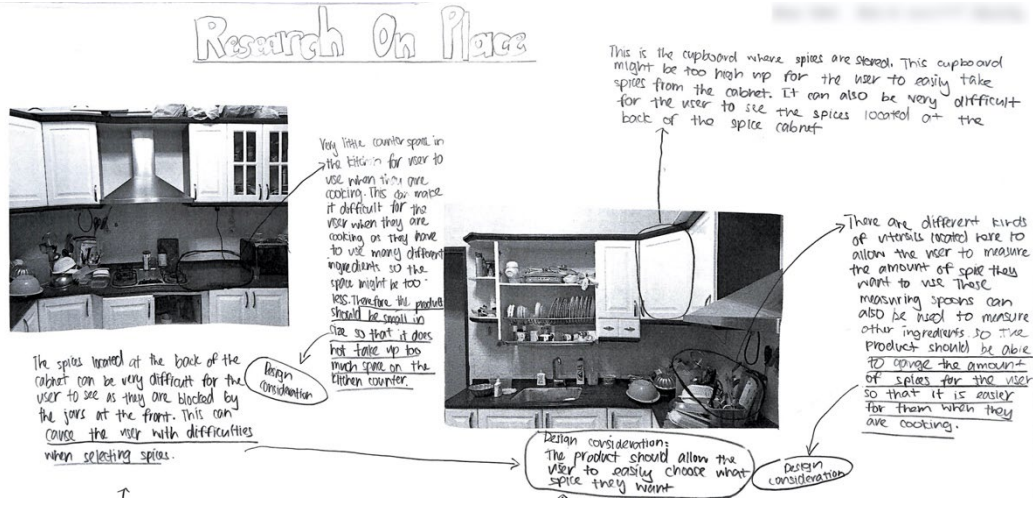 Research On Place
This is the cupboard where spices are stored. This cupboard
might be too high up for the user to easily take
spices from the cabnet. It can also be very difficult
for the user to see the spices located at the
back of the spice cabnet
Very little counter space in
the kitchen for user to
use when they are
cooking. This can make
it difficult for the
user when they are
cooking as they have
to use many different
ingredients so the
space might be too
less. Therefore the product
should be small in
size so that it does
not take up too
much space on the
kitchen counter.
Design
consideration
There are different kinds
of utensils located here to
allow the user to measure
the amount of spice they
want to use These
measuring spoons can
also be used to measure
other ingredients so the
product should be able
to gauge the amount
of spices for the user
so that it is easier
for them when they
are cooking.
Design
consideration
The spices located at the back of the
cabnet can be very difficult for the
user to see as they are blocked by
the jars at the front. This can
cause the user with difficulties
when selecting spices.
Design consideration:
The product should allow the
user to easily choose what
spice they want